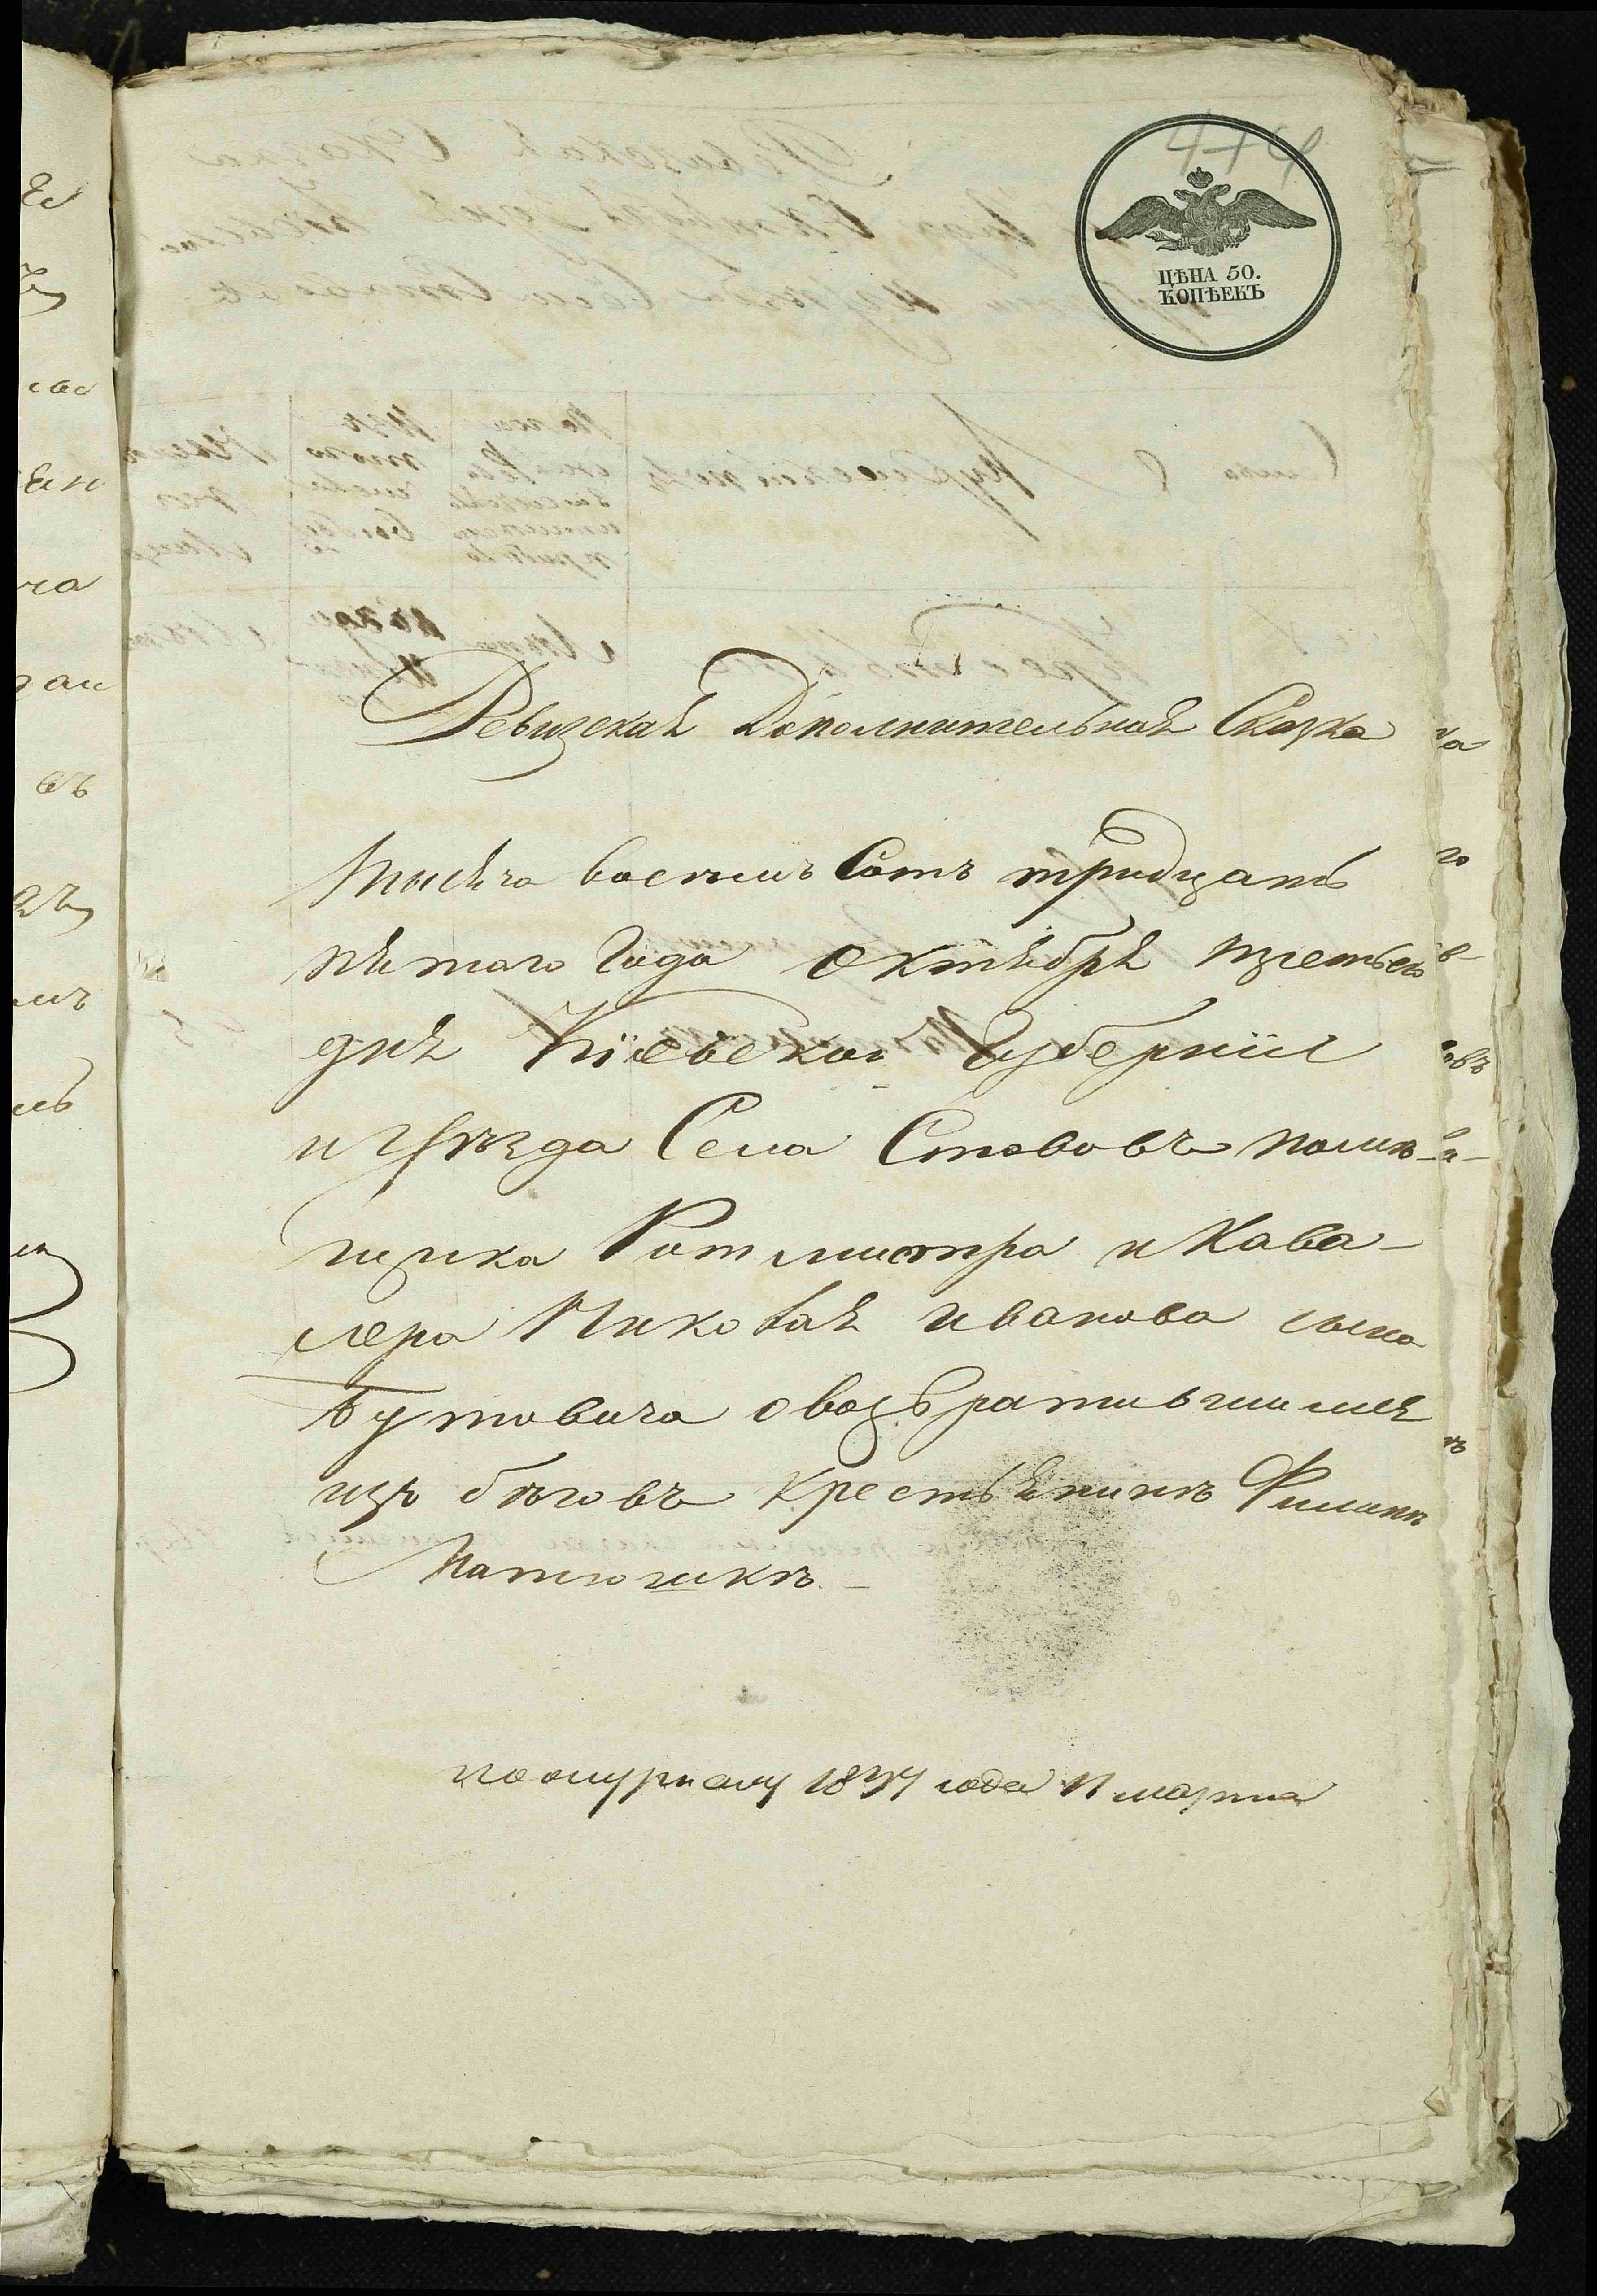 474
ЦѢНА 50.
КОПѢЕКЪ
Ревизская Дополнительная Сказка
тысяча восемь Сотъ тридцать
пятаго Года Октября третьего
дня Кіевской Губерніи
и Уѣзда Села Ставовъ помѣ-
щика Ротмистра и Кава-
лера Николая Иванова сына
Бутовича о возвратившимся
изъ бѣговъ крестьянинѣ Филипѣ
Матюшкѣ.
по журналу 1837 года 11 марта